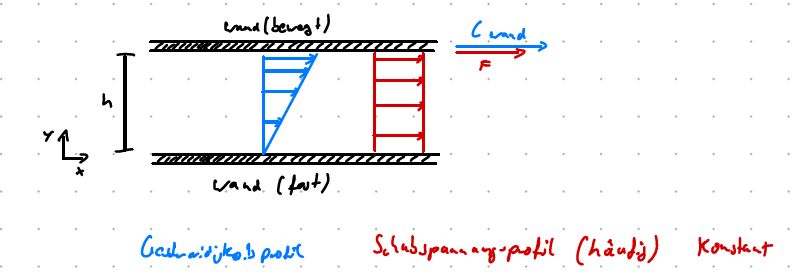 wand (bewegt)
C wand
F
h
y
x
wand (fest)
Geschwindigkeitsprofil Schubspannungsprofil (häufig) konstant